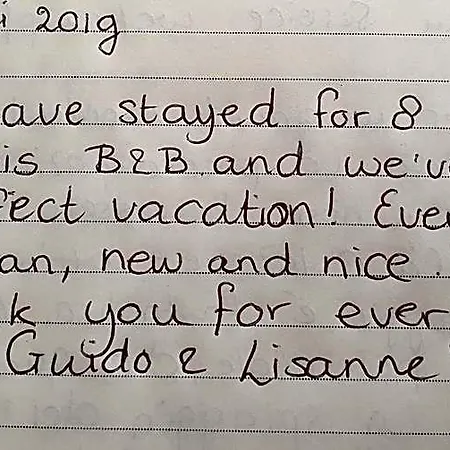 i 2019
ave stayed for 8
is B&B and we'v
fect vacation! Ever
an, new and nice.
k you for ever
Guido & Lisanne